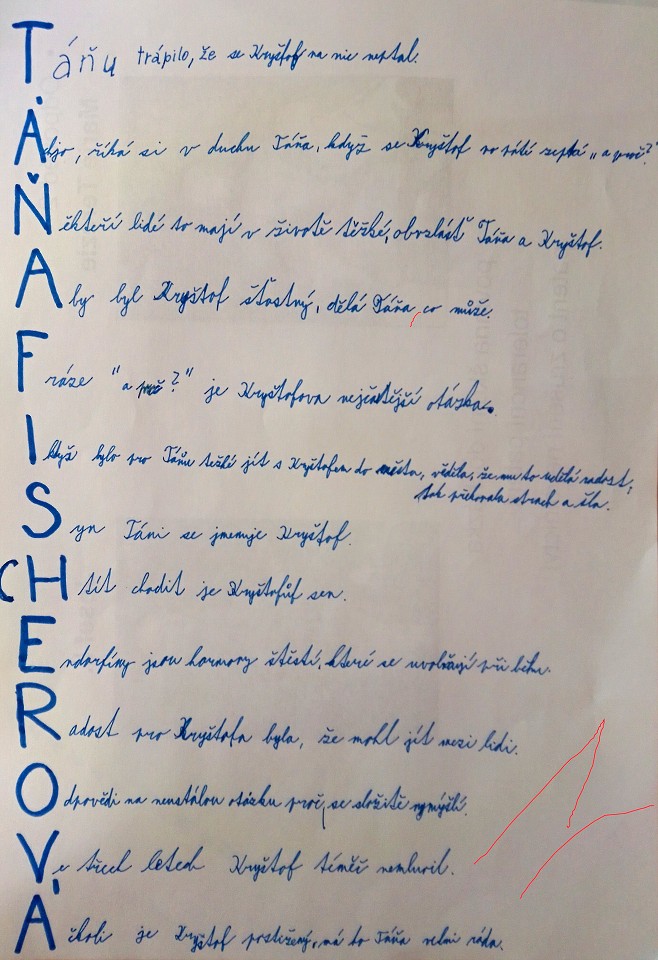 Táňu trápilo, že se Kryštof na nic neptal.
Áchjo, říká si v duchu Táňa, když se Kryštof po páté zeptá „a proč?"
Někteří lidé to mají v životě těžké, obvzlášť Táňa a Kryštof.
Aby byl Kryštof šťastný, dělá Táňa, co může.
Fráze "a proč?" je Kryštofova nejčastější otázka.
I když bylo pro Táňu težké jít s Kryštofem do města, věděla, že mu to udělá radost,
tak překonala strach a šla.
Syn Táni se jmenuje Kryštof.
CHtít chodit je Kryštofův sen.
Endorfiny jsou hormony štěstí, které se uvolňují při běhu.
Radost pro Kryštofa byla, že mohl jít mezi lidi.
Odpovědi na neustálou otázku proč, se složitě vymýšlí.
Ve třech letech Kryštof téměř nemluvil.
Ačkoli je Kryštof postižený, má ho Táňa velmi ráda.